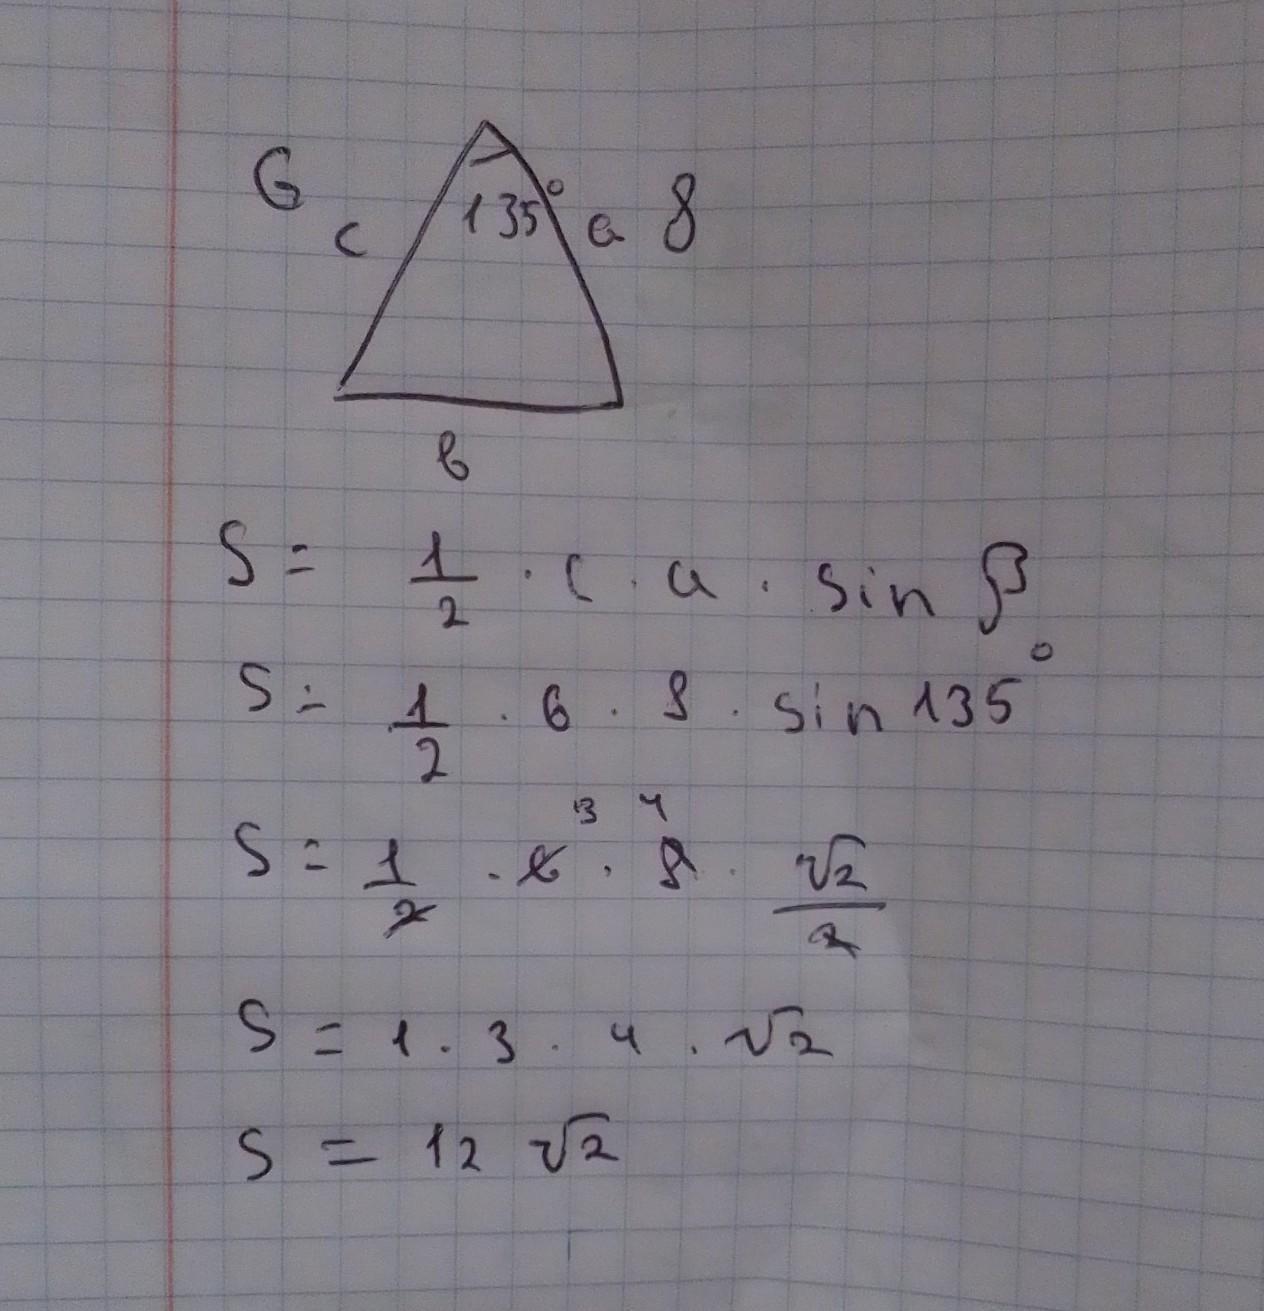 6 c 135° a 8
в
S = 1/2 · c · a · sin β
S = 1/2 · 6 · 8 · sin 135°
3 4
S = 1/2 · 6 · 8 · √2/2
S = 1 · 3 · 4 · √2
S = 12 √2